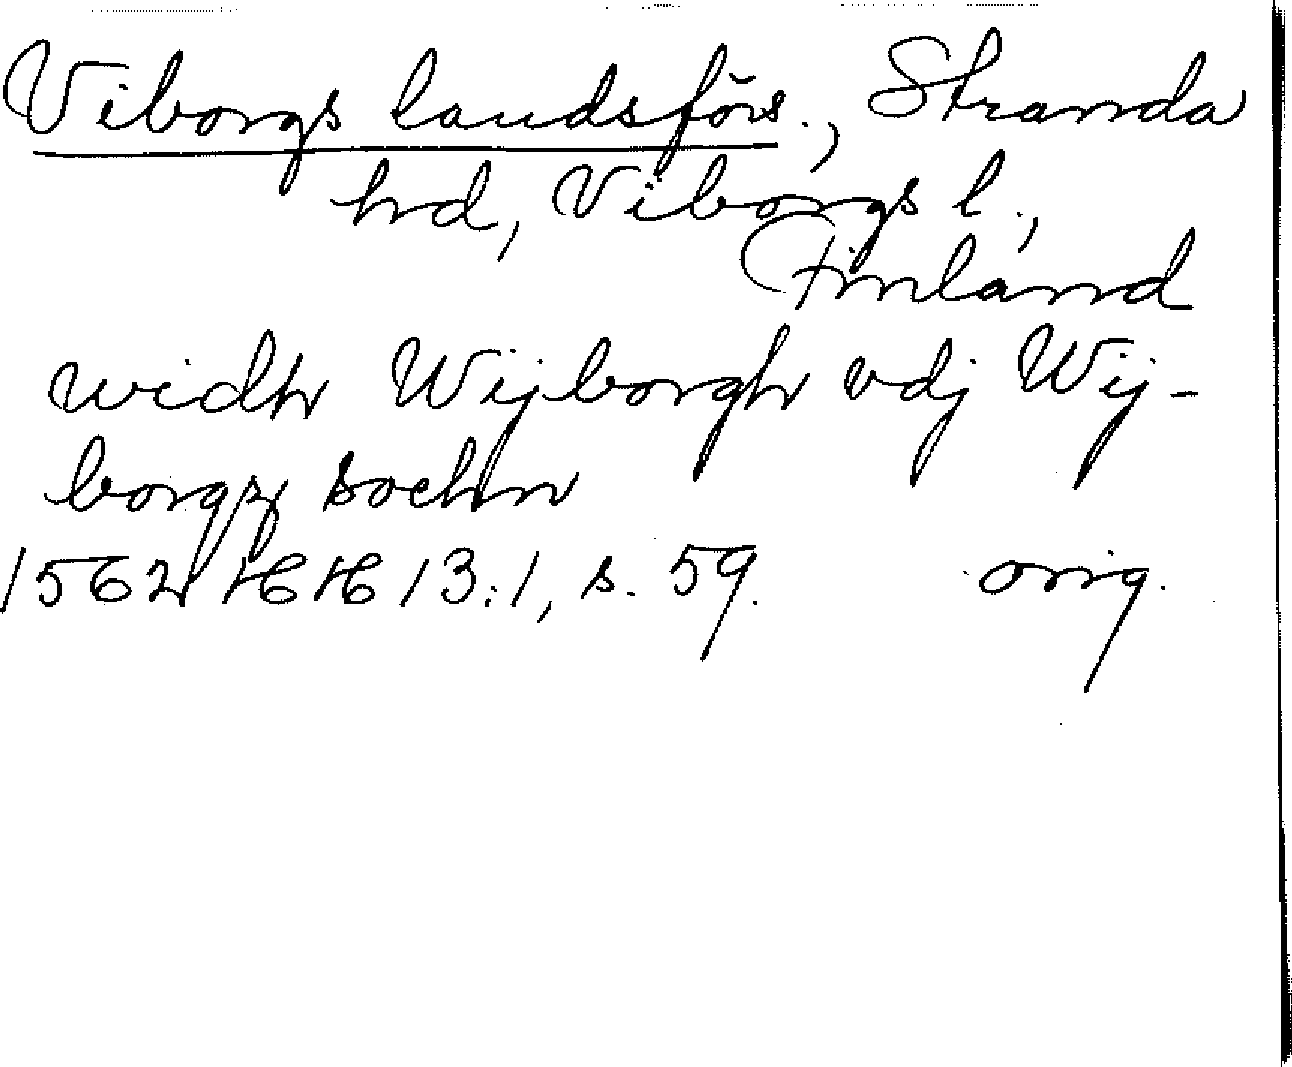 Viborgs landsförs., Stranda
hd, Viborgs l.,
Finland
widh Wijborgh vdj Wij-
borgz sochn
1562 HH 13:1, s. 59. orig.